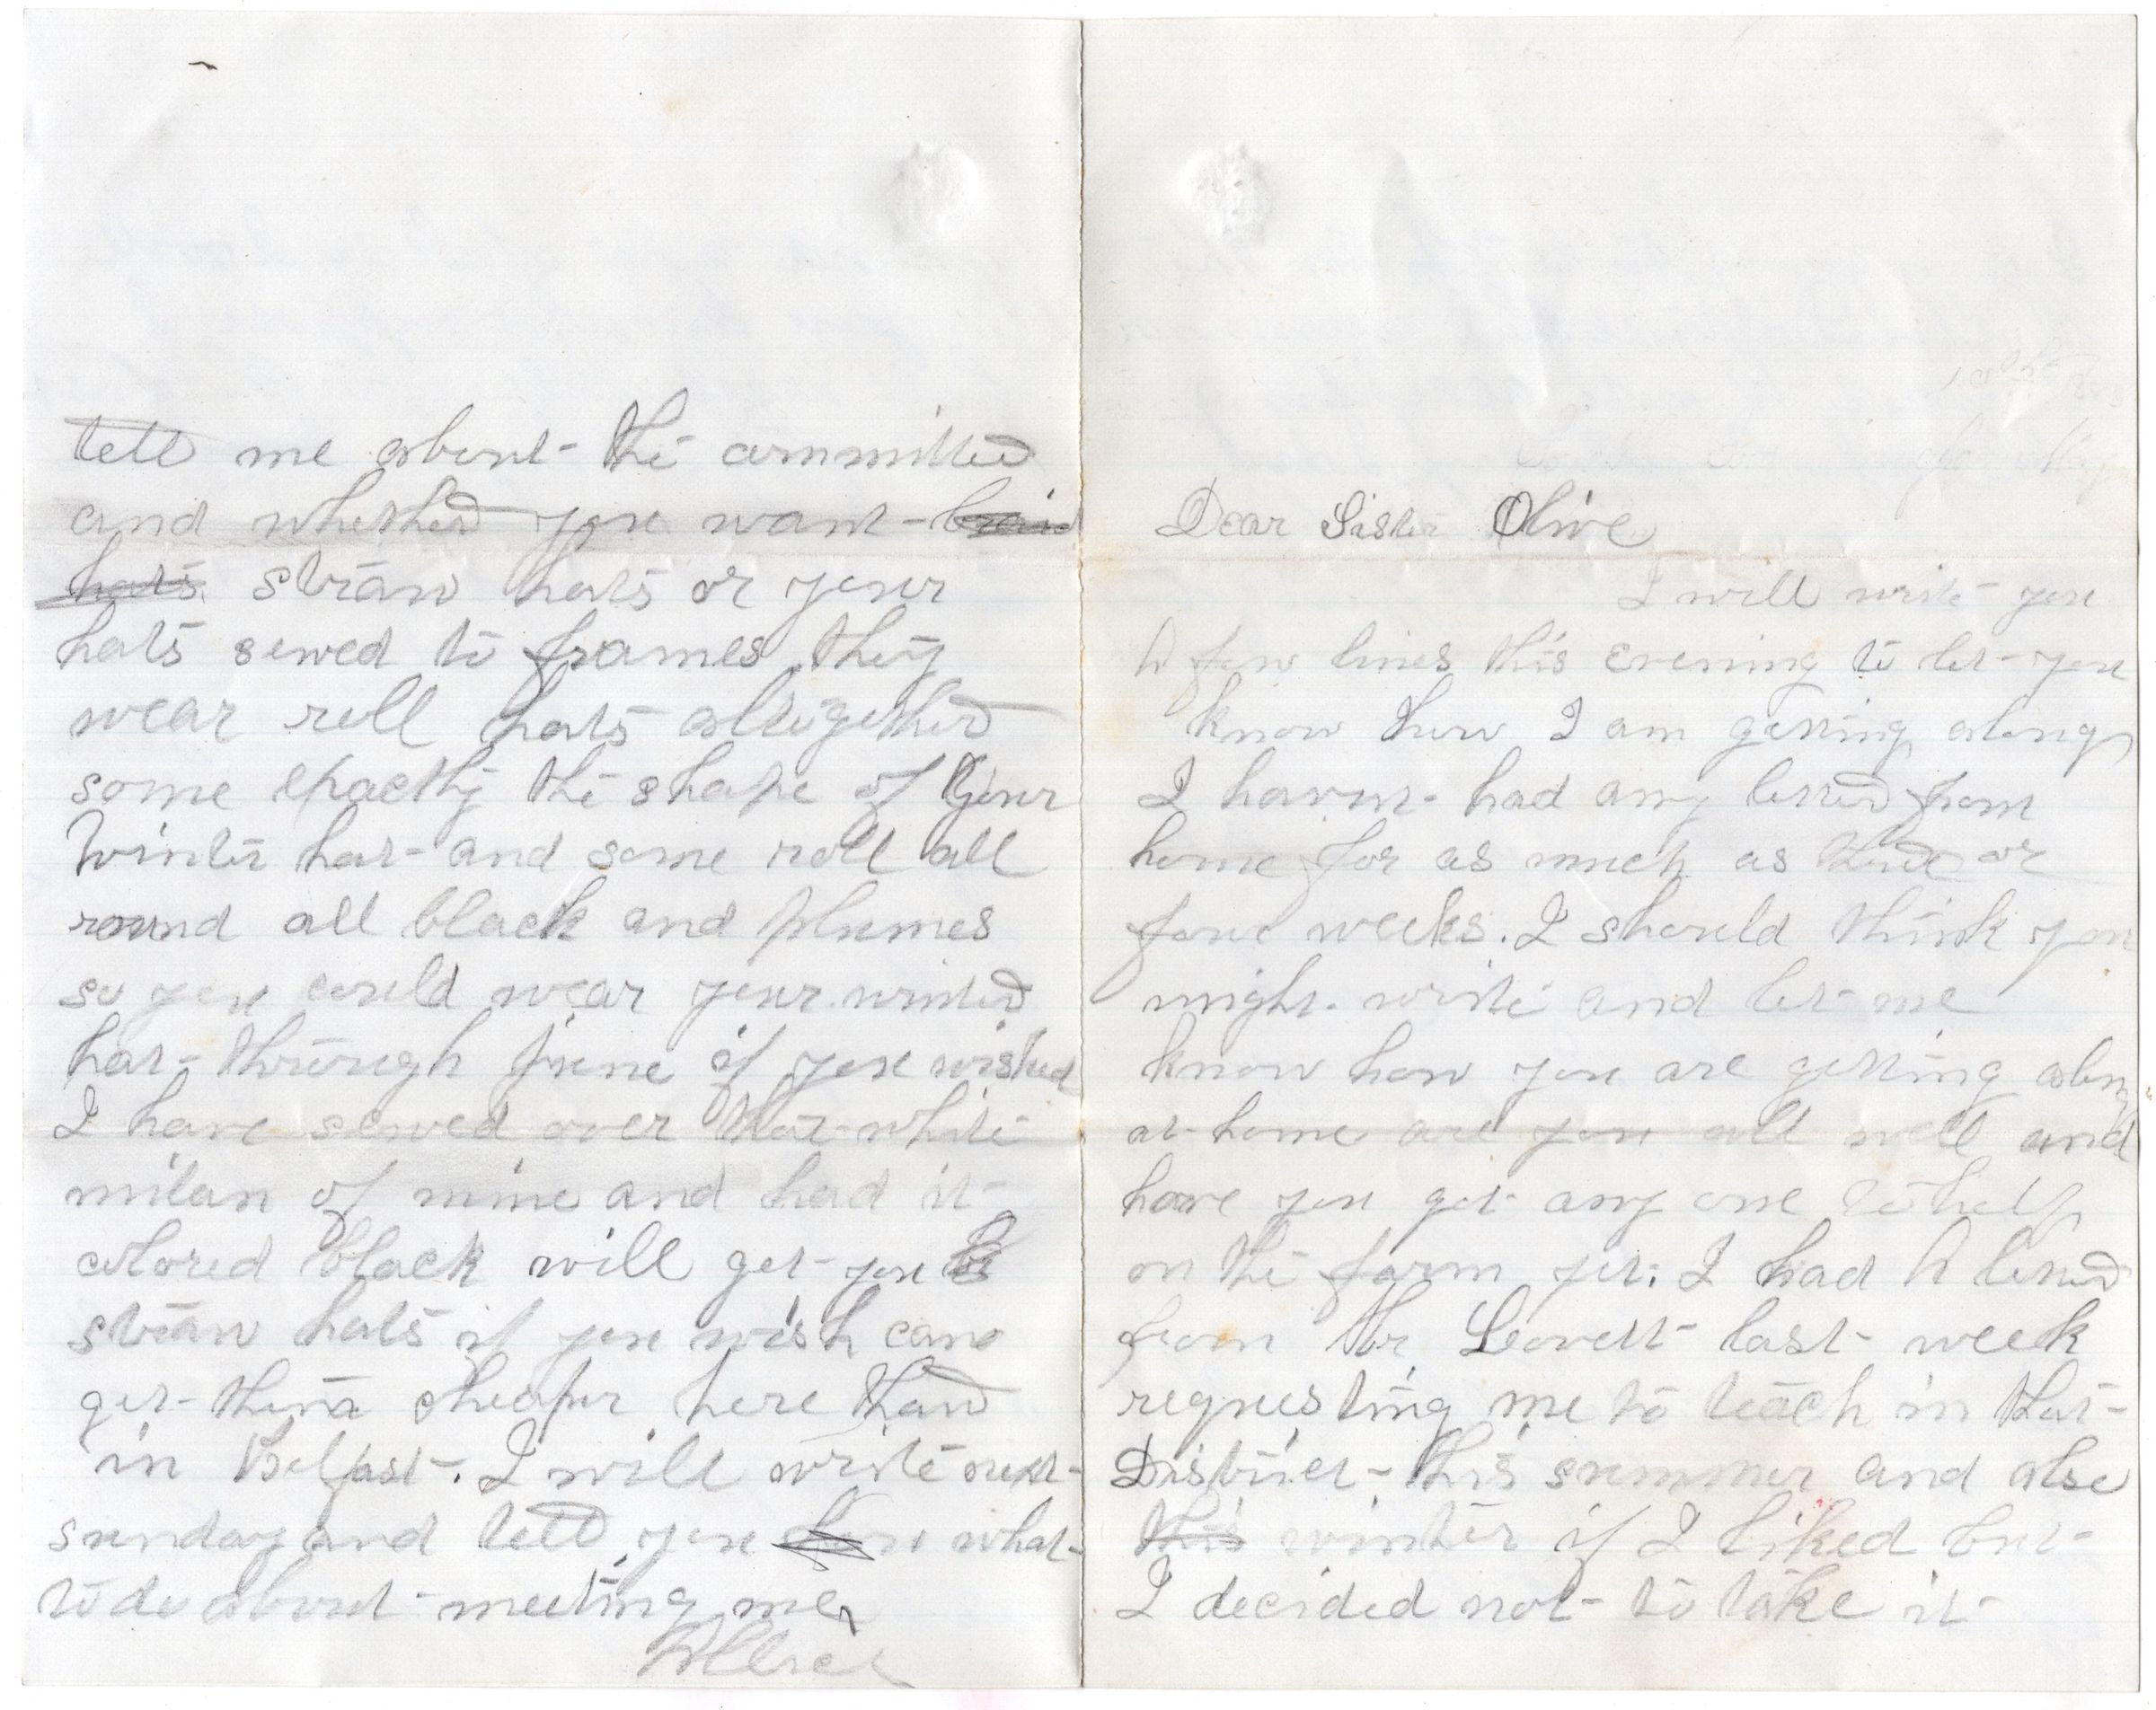 Dear Sister Olive
I will write you
A few lines this evening to let you
know how I am getting along
I havnt had any letter from
home for as much as three or
four weeks. I should think you
might write and let me
know how you are getting along
at home are you all well and
have you got any one to help
on the farm yet. I had A letter
from Mr Lovett last week
requesting me to teach in that
District this summer and also
this winter if I liked but
I decided not to take it
tell me about the committee
and whether you want braid
hats straw hats or your
hats sewed to frames they
wear roll hats altogether
some exactly the shape of your
winter hat and some roll all
round all black and plumes
so you could wear your winter
hat through June if you wished
I have sewed over that white
milan of mine and had it
colored black will get you
straw hats if you wish can
get them cheaper here than
in Belfast. I will write next
sunday and tell you how what
to do about meeting me
Allie